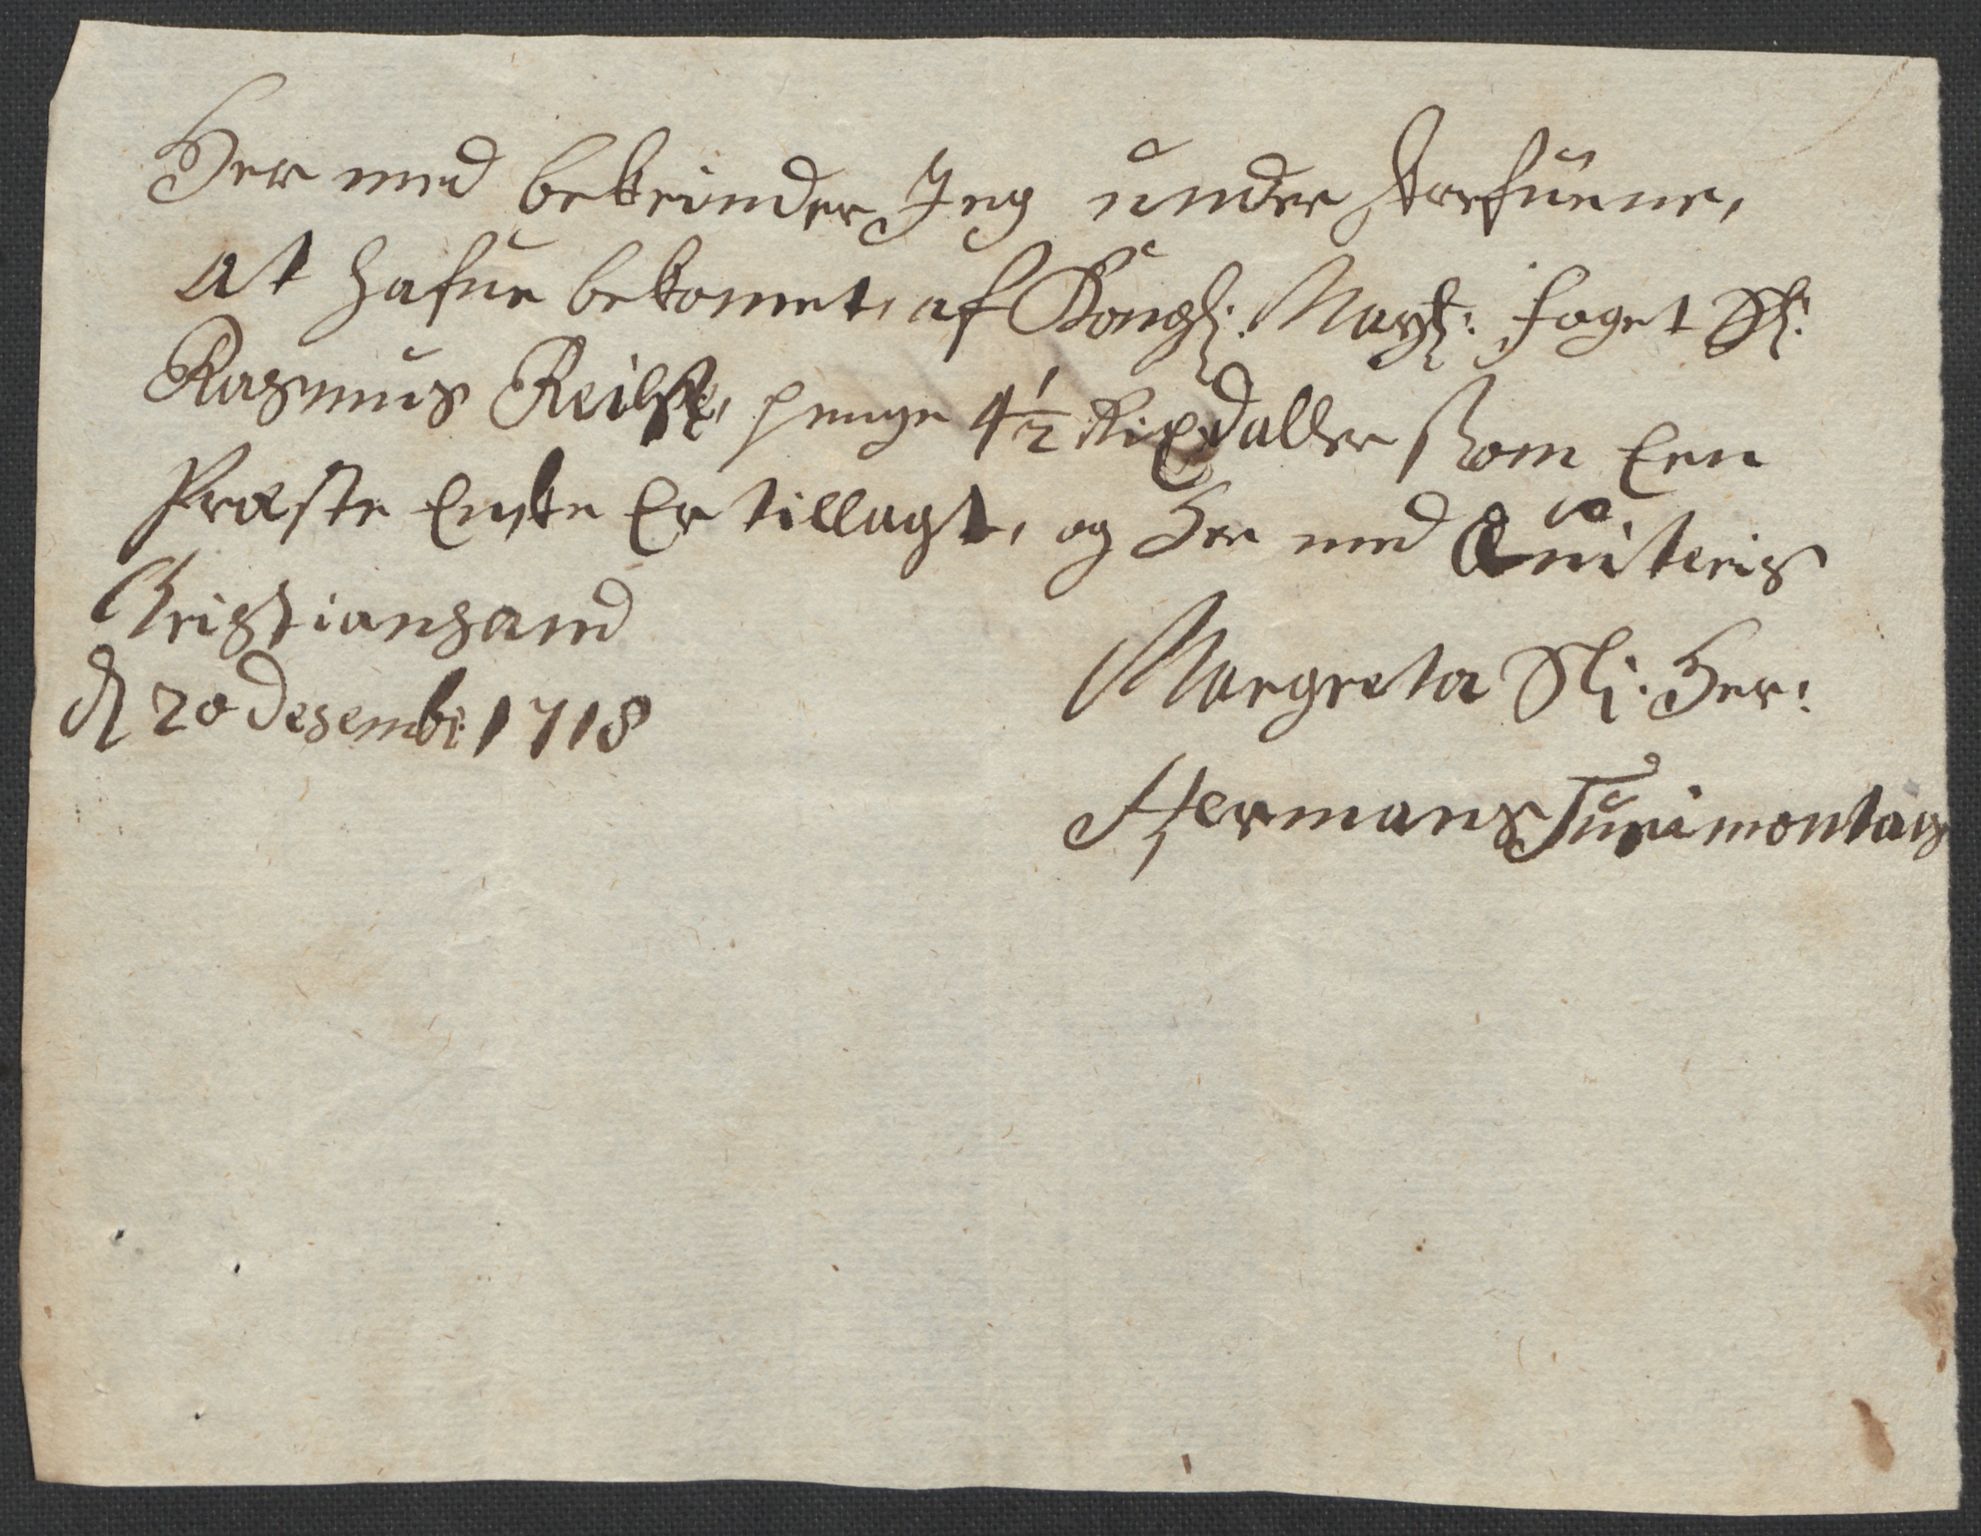 Her med bekeinder Jeg under skrefuene,
at hafue bekomet, af Kongl: Mayt: foget Sr:
Rasmus Reilst, penge 4½ Rixdaller som Een
Præste Encke Er tillagt, og Her med Quiteris
Christiansand
d 20 Desembr: 1718
Margreta Sl: Her:
Hermans Turimontais